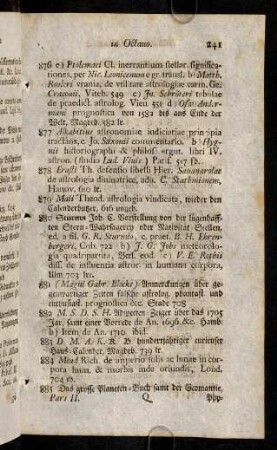 in Octavo. 241
876 a) Ptolemæi Cl. inerrantium stellar. significa-
tiones, per Nic. Leonicenum e gr. transl. b Matth.
Rosleri vrania, de vtilitate astrologiae carm. Ge.
Cracouii, Viteb. 549 c) Jo. Schröteri tabulae
de praedict. astrolog. Vien 551 d) Osw. Ande-
mani prognostica von 1582 bis ans Ende der
Welt, Magdeb. 582 ltr.
877 Alkabitius astronomiae iudiciariae principia
tractans, c. Jo. Saxonii commentario. b) Hyg-
nii historiographi & philos. argut. libri IV.
astron. (studio Lud. Viuis.) Paris. 517 fb.
878 Erasti Th. defensio libelli Hier. Sauanarolae
de astrologia diuinatrice, adu. C. Stathmionem,
Hanov. 610 lr.
879 Maii Theod. astrologia vindicata, wieder den
Calenderhasser, 616 ungeb.
880 Sturms Joh. C. Vorstellung von der lügenhaff-
ten Stern-Wahrsagerey oder Nativität-Stellen,
ed. a fil. G. R. Sturmio, c. praef. B. H. Ehren-
bergeri, Cob. 722 b) J. G. Jobs meteorolo-
gia quadripartita, Versl. eod. c) V. E. Rothii
diss. de influentia astror. in humani corpora,
Ulm 703 ltr.
881 (Magni Gabr. Blocks) Anmerckungen über ge-
genwärtiger Zeiten falsche astrolog. phantast. und
enthusiast. prognosticis &c Stade 708
882 M. S. D. S. H. Adspecten-Zeiger über das 1705
Jar, samt einer Vorrede de An. 1696 &c. Hamb.
b) Item, de An. 1710 ibid.
883 D. M. A. K. R. B. hundertjähriger curieuser
Haus-Calender, Magdeb. 739 lr.
884 Mead Rich. de imperio solis ac lunae in cor-
pora hum. & morbis inde oriundis, Lond.
704 m.
885 Das grosse Planeten-Buch samt der Geomantie,
Pars II. Q Phy-